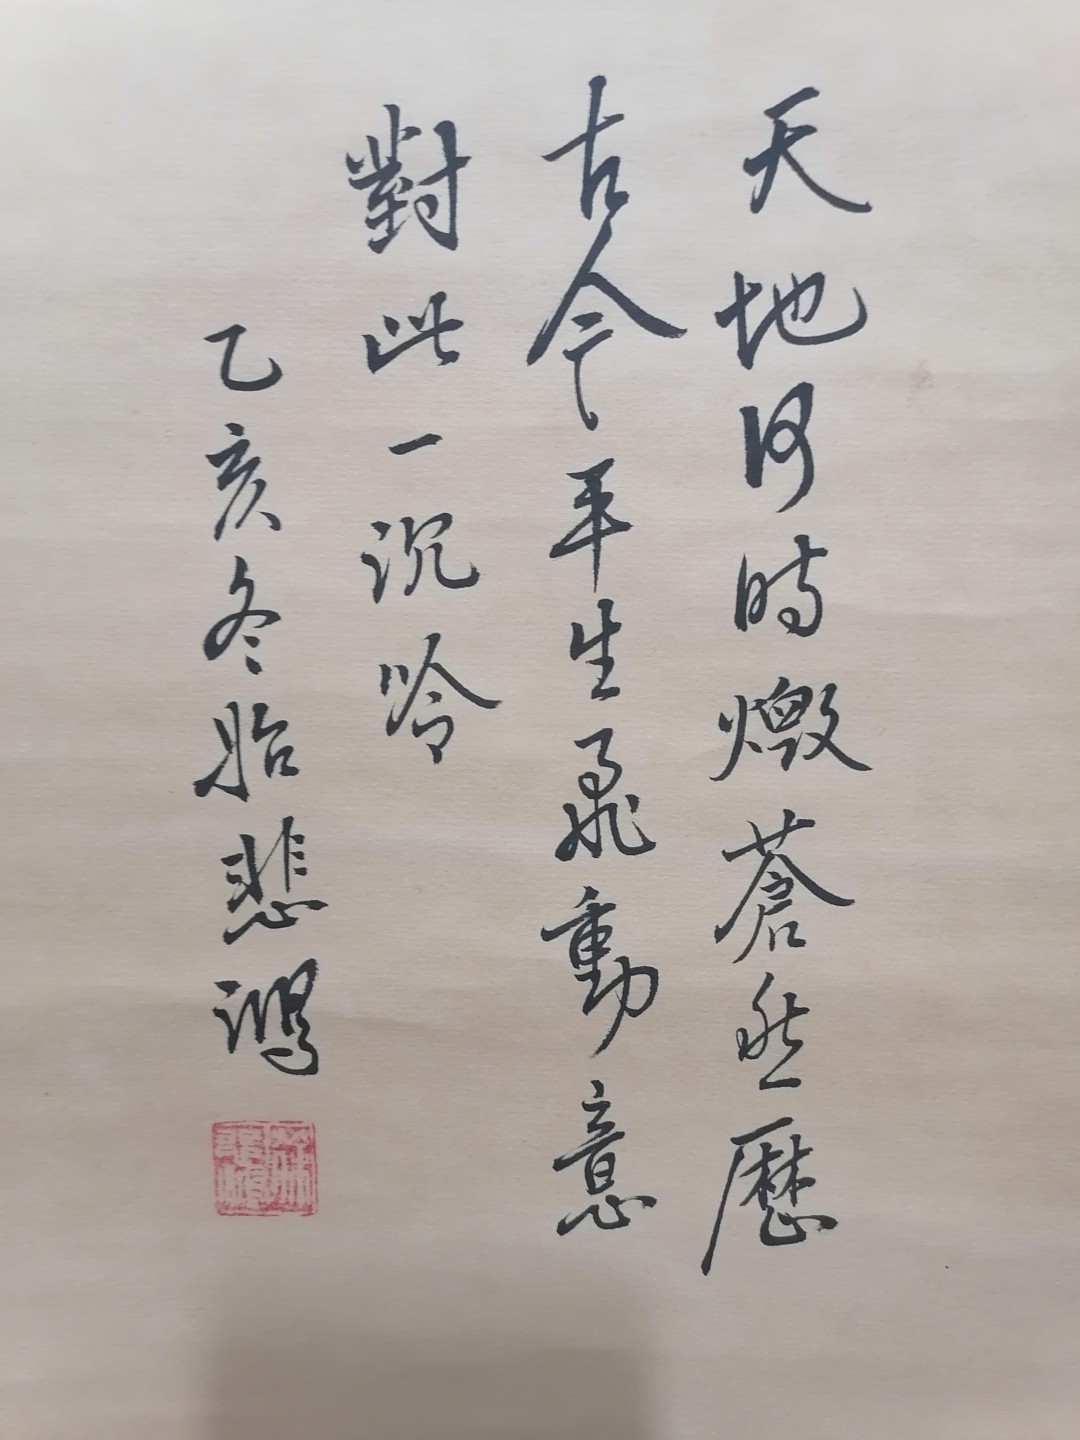 天地何時燬蒼然歷
古今平生飛動意
對此一沉吟
乙亥冬始悲鴻
徐悲鴻